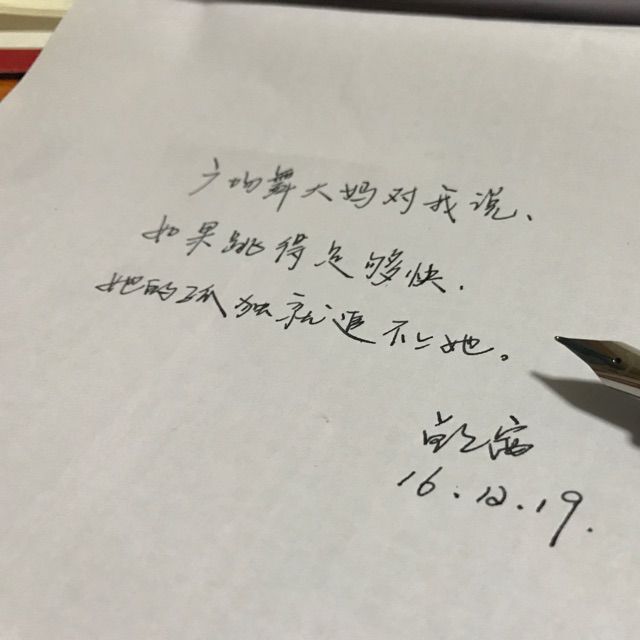 广场舞大妈对我说、
如果跳得足够快.
她的孤独就追不上她。
16.12.19.